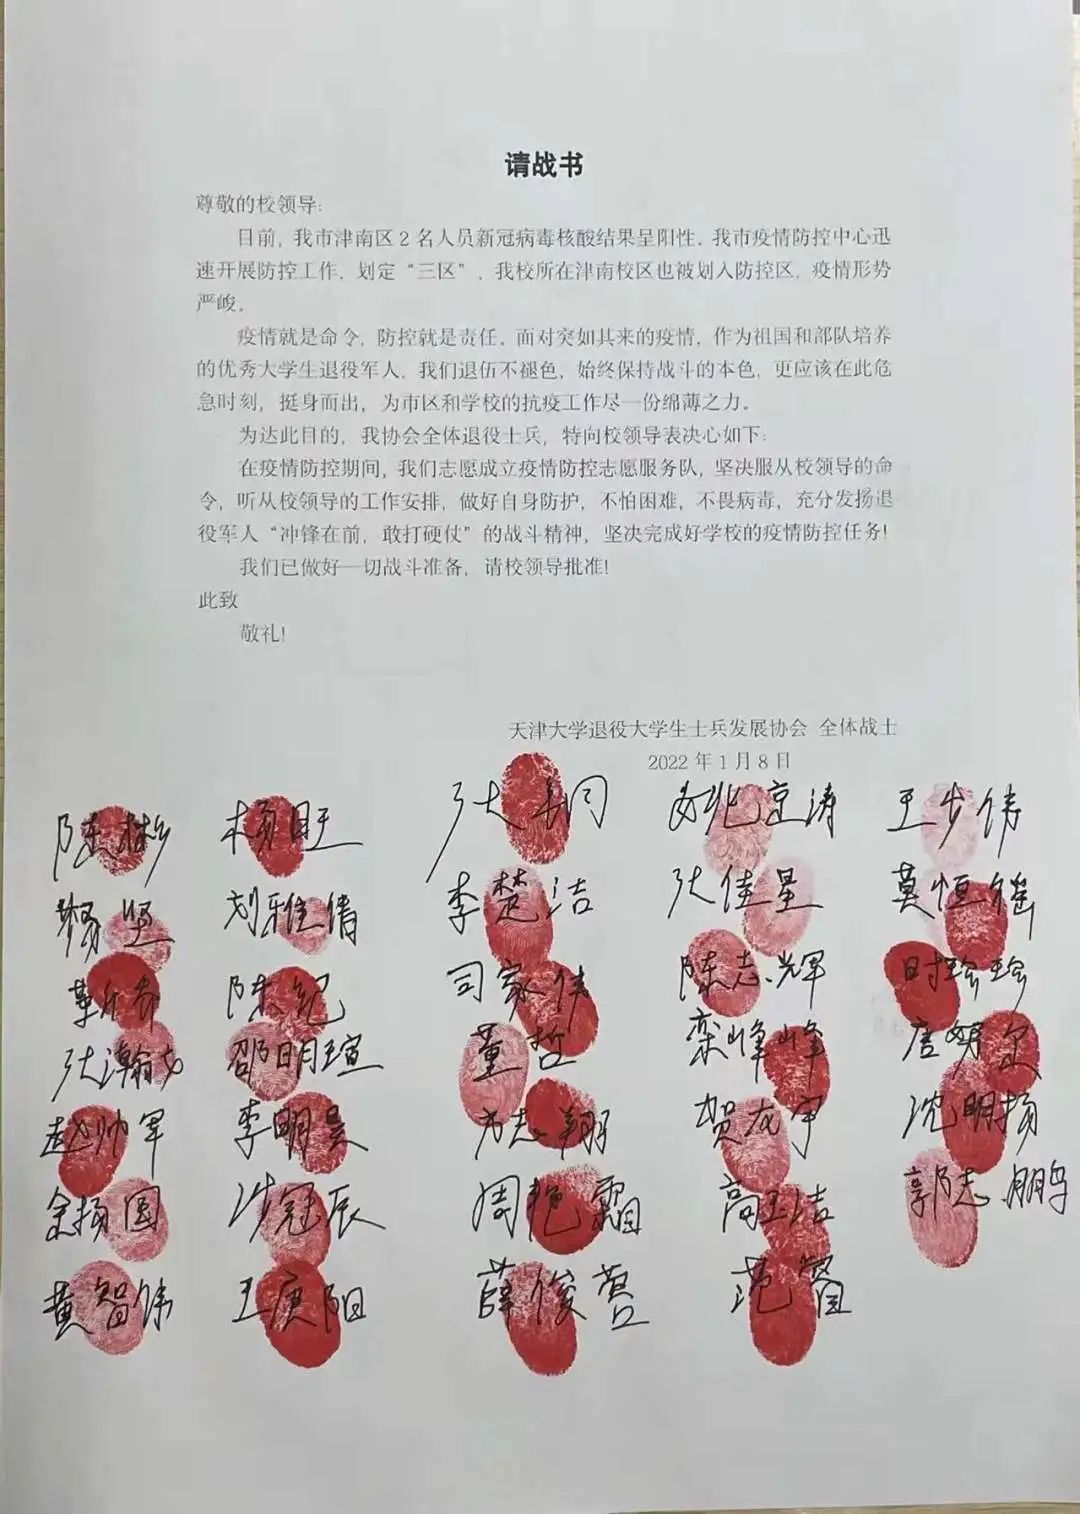 请战书
尊敬的校领导:
目前，我市津南区2名人员新冠病毒核酸结果呈阳性，我市疫情防控中心迅
速开展防控工作，划定“三区”，我校所在津南校区也被划入防控区，疫情形势
严峻。
疫情就是命令，防控就是责任，面对突如其来的疫情，作为祖国和部队培养
的优秀大学生退役军人，我们退伍不褪色，始终保持战斗的本色，更应该在此危
急时刻，挺身而出，为市区和学校的抗疫工作尽一份绵薄之力。
为达此目的，我协会全体退役士兵，特向校领导表决心如下:
在疫情防控期间，我们志愿成立疫情防控志愿服务队，坚决服从校领导的命
令，听从校领导的工作安排，做好自身防护，不怕困难，不畏病毒，充分发扬退
役军人“冲锋在前，敢打硬仗”的战斗精神，坚决完成好学校的疫情防控任务!
我们已做好一切战斗准备，请校领导批准!
此致
敬礼!
天津大学退役大学生士兵发展协会 全体战士
2022年1月8日
陈彬 杨旺 王步伟
杨坚 刘雅倩 李楚洁 张佳星 莫恒
陈妃 司家伟 陈志辉 时珍珍
张瀚文 邵明瑄 董哲 栾峰峰
赵帅军 李明昊 志翔 贺友宇 沈明扬
余扬图 冠辰 周艳霜 高玉洁 郭志鹏
黄智伟 王庚阳 薛俊营 范